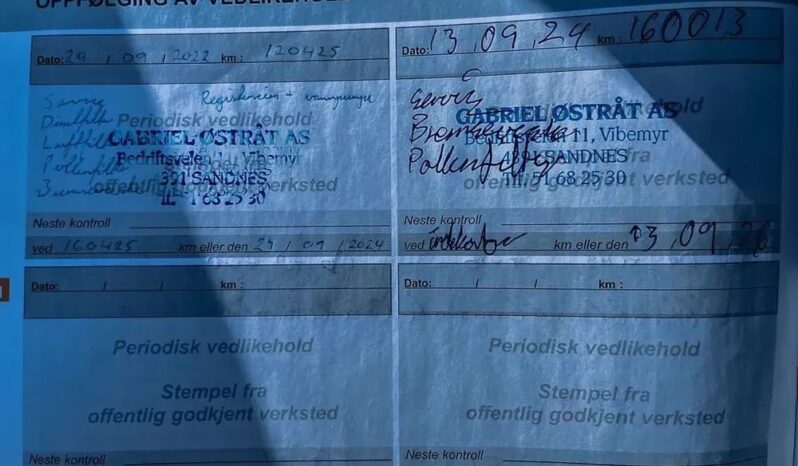 OPPFØLGING AV VEDLIKEHOLD
Dato: 29/09/2022 km: 120425
Service Registerreim + vannpumpe
Dieselfilter
Luftfilter
Pollenfilter
Periodisk vedlikehold
GABRIEL ØSTRÅT AS
Vibemyr
4391 SANDNES
Tlf. 51 68 25 30
offentlig godkjent verksted
Neste kontroll
ved 160425 km eller den 29/09/2024
Dato: 13,09,24 km: 160013
Service
Periodisk vedlikehold
GABRIEL ØSTRÅT AS
11, Vibemyr
4391 SANDNES
fra
Tlf. 51 68 25 30
offentlig godkjent verksted
Neste kontroll
ved km eller den 13,09,26
Dato: / / km:
Periodisk vedlikehold
Stempel fra
offentlig godkjent verksted
Neste kontroll
Dato: / / km:
Periodisk vedlikehold
Stempel fra
offentlig godkjent verksted
Neste kontroll